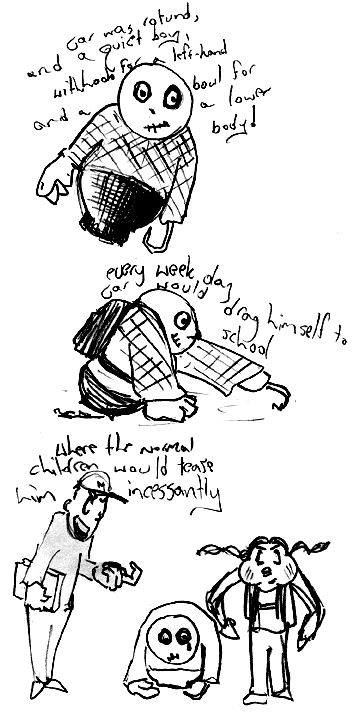 Gar was rotund,
and a quiet boy,
with hook for a left-hand
and a bowl for
a lower
body!
every week day
Gar would
drag himself to
school
where the normal
children would tease
him incessantly